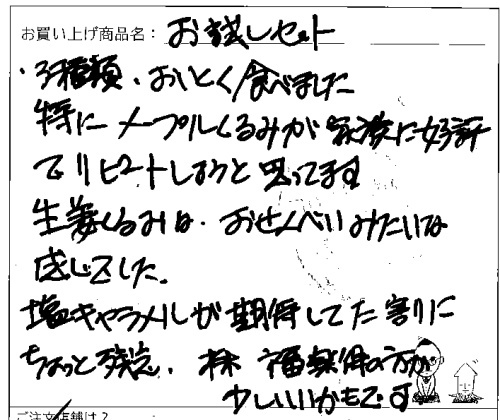 お買い上げ商品名： お試しセット
・3種類、おいしく食べました
特にメープルくるみが家族に好評
でリピートしようと思ってます
生姜くるみは、おせんべいみたいな
感じでした。
塩キャラメルが期待してた割りに
ちょっと残念、
方が
少しいいかもです
ご注文店舗は？